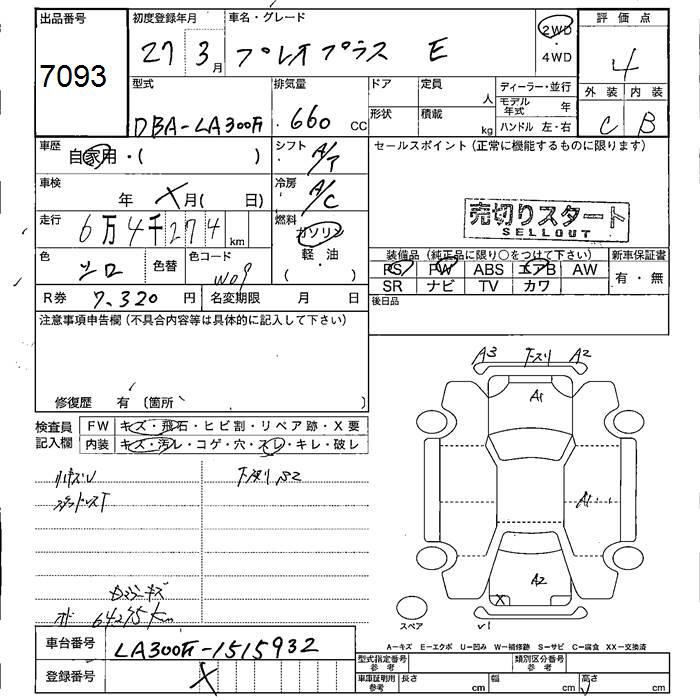 出品番号
7093
初度登録年月
27 3月
車名・グレード
プレオプラス E
2WD
・
4WD
評価点
4
外装 内装
C B
型式
DBA-LA300F
排気量
660 CC
ドア
定員
人
形状
積載
kg
ディーラー・並行
モデル年式 年
ハンドル 左・右
車歴
自家用・( )
シフト
A/T
セールスポイント(正常に機能するものに限ります)
売切りスタート
SELLOUT
車検
年 X月( 日)
冷房
A/C
走行
6万4千274 km
燃料
ガソリン
軽・油
( )
色
シロ
色替
色コード
W09
装備品(純正品に限り○をつけて下さい)
PS PW ABS エアB AW
SR ナビ TV カワ
新車保証書
有・無
R券 7,320 円
名変期限 月 日
後日品
注意事項申告欄(不具合内容等は具体的に記入して下さい)
修復歴 有 〔箇所
検査員
記入欄
FW キズ・飛石・ヒビ割・リペア跡・X要
内装 キズ・汚レ・コゲ・穴・スレ・キレ・破レ
A3 下スリ A2
A1
A1
A2
X
√1
スペア
64275km
車台番号
LA300F-1515932
登録番号
X
A-キズ E-エクボ U-凹み W-補修跡 S-サビ C-腐食 XX-交換済
型式指定番号
参考
類別区分番号
参考
車庫証明用
参考
長さ cm
幅 cm
高さ cm